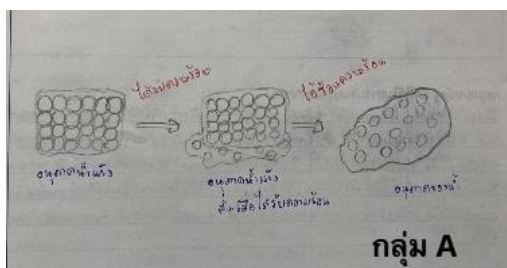 ได้รับความร้อน
ได้รับความร้อน
อนุภาคน้ำแข็ง
อนุภาคน้ำแข็ง
เมื่อได้รับความร้อน
อนุภาคของน้ำ
กลุ่ม A